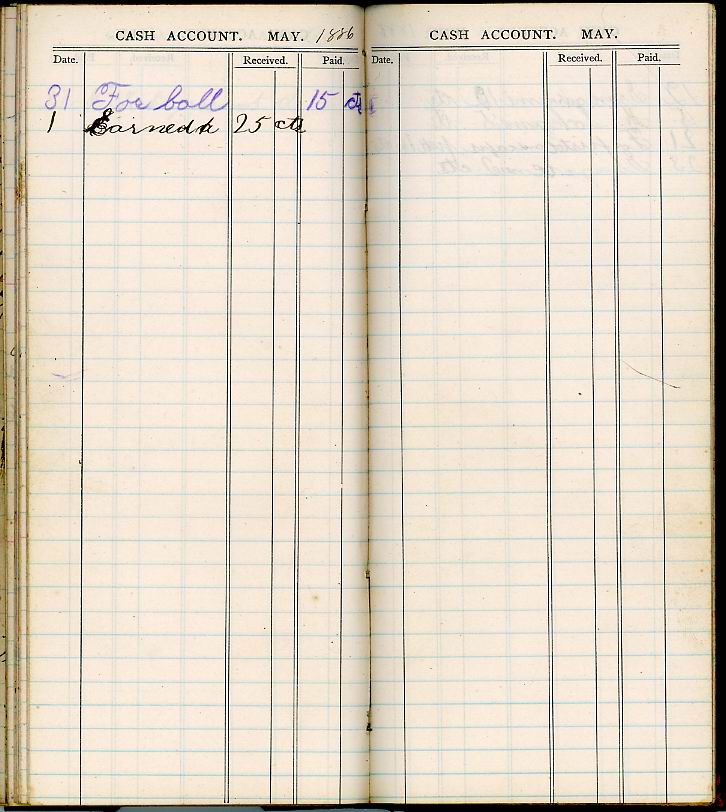 CASH ACCOUNT. MAY. 1886
Date. Received. Paid.
31 For ball 15 cts
1 Earned 25 cts
CASH ACCOUNT. MAY.
Date. Received. Paid.